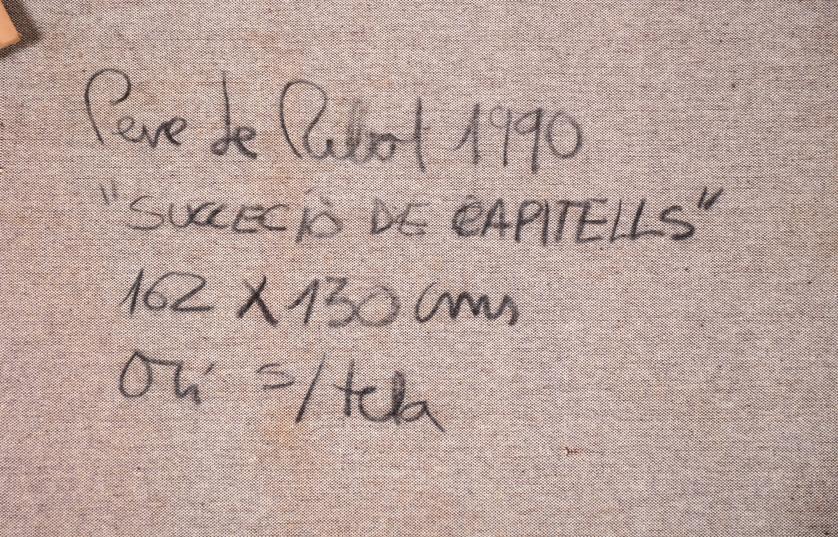 Pere de Ribot 1990
"SUCCECIÓ DE CAPITELLS"
162 X 130 cms
Oli s/tela